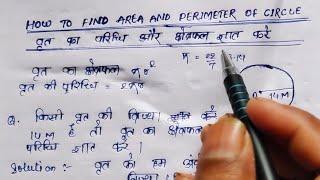 HOW TO FIND AREA AND PERIMETER OF CIRCLE
वृत का परिधि और क्षेत्रफल ज्ञात करे
π = 22/7 3.14
वृत का क्षेत्रफल πr²
वृत की परिधि = 2πr
14 M
Q. किसी वृत की त्रिज्या
14 M है तो वृत का क्षेत्रफल
ज्ञात करे।
Solution:- वृत का हम
त्रिज्या